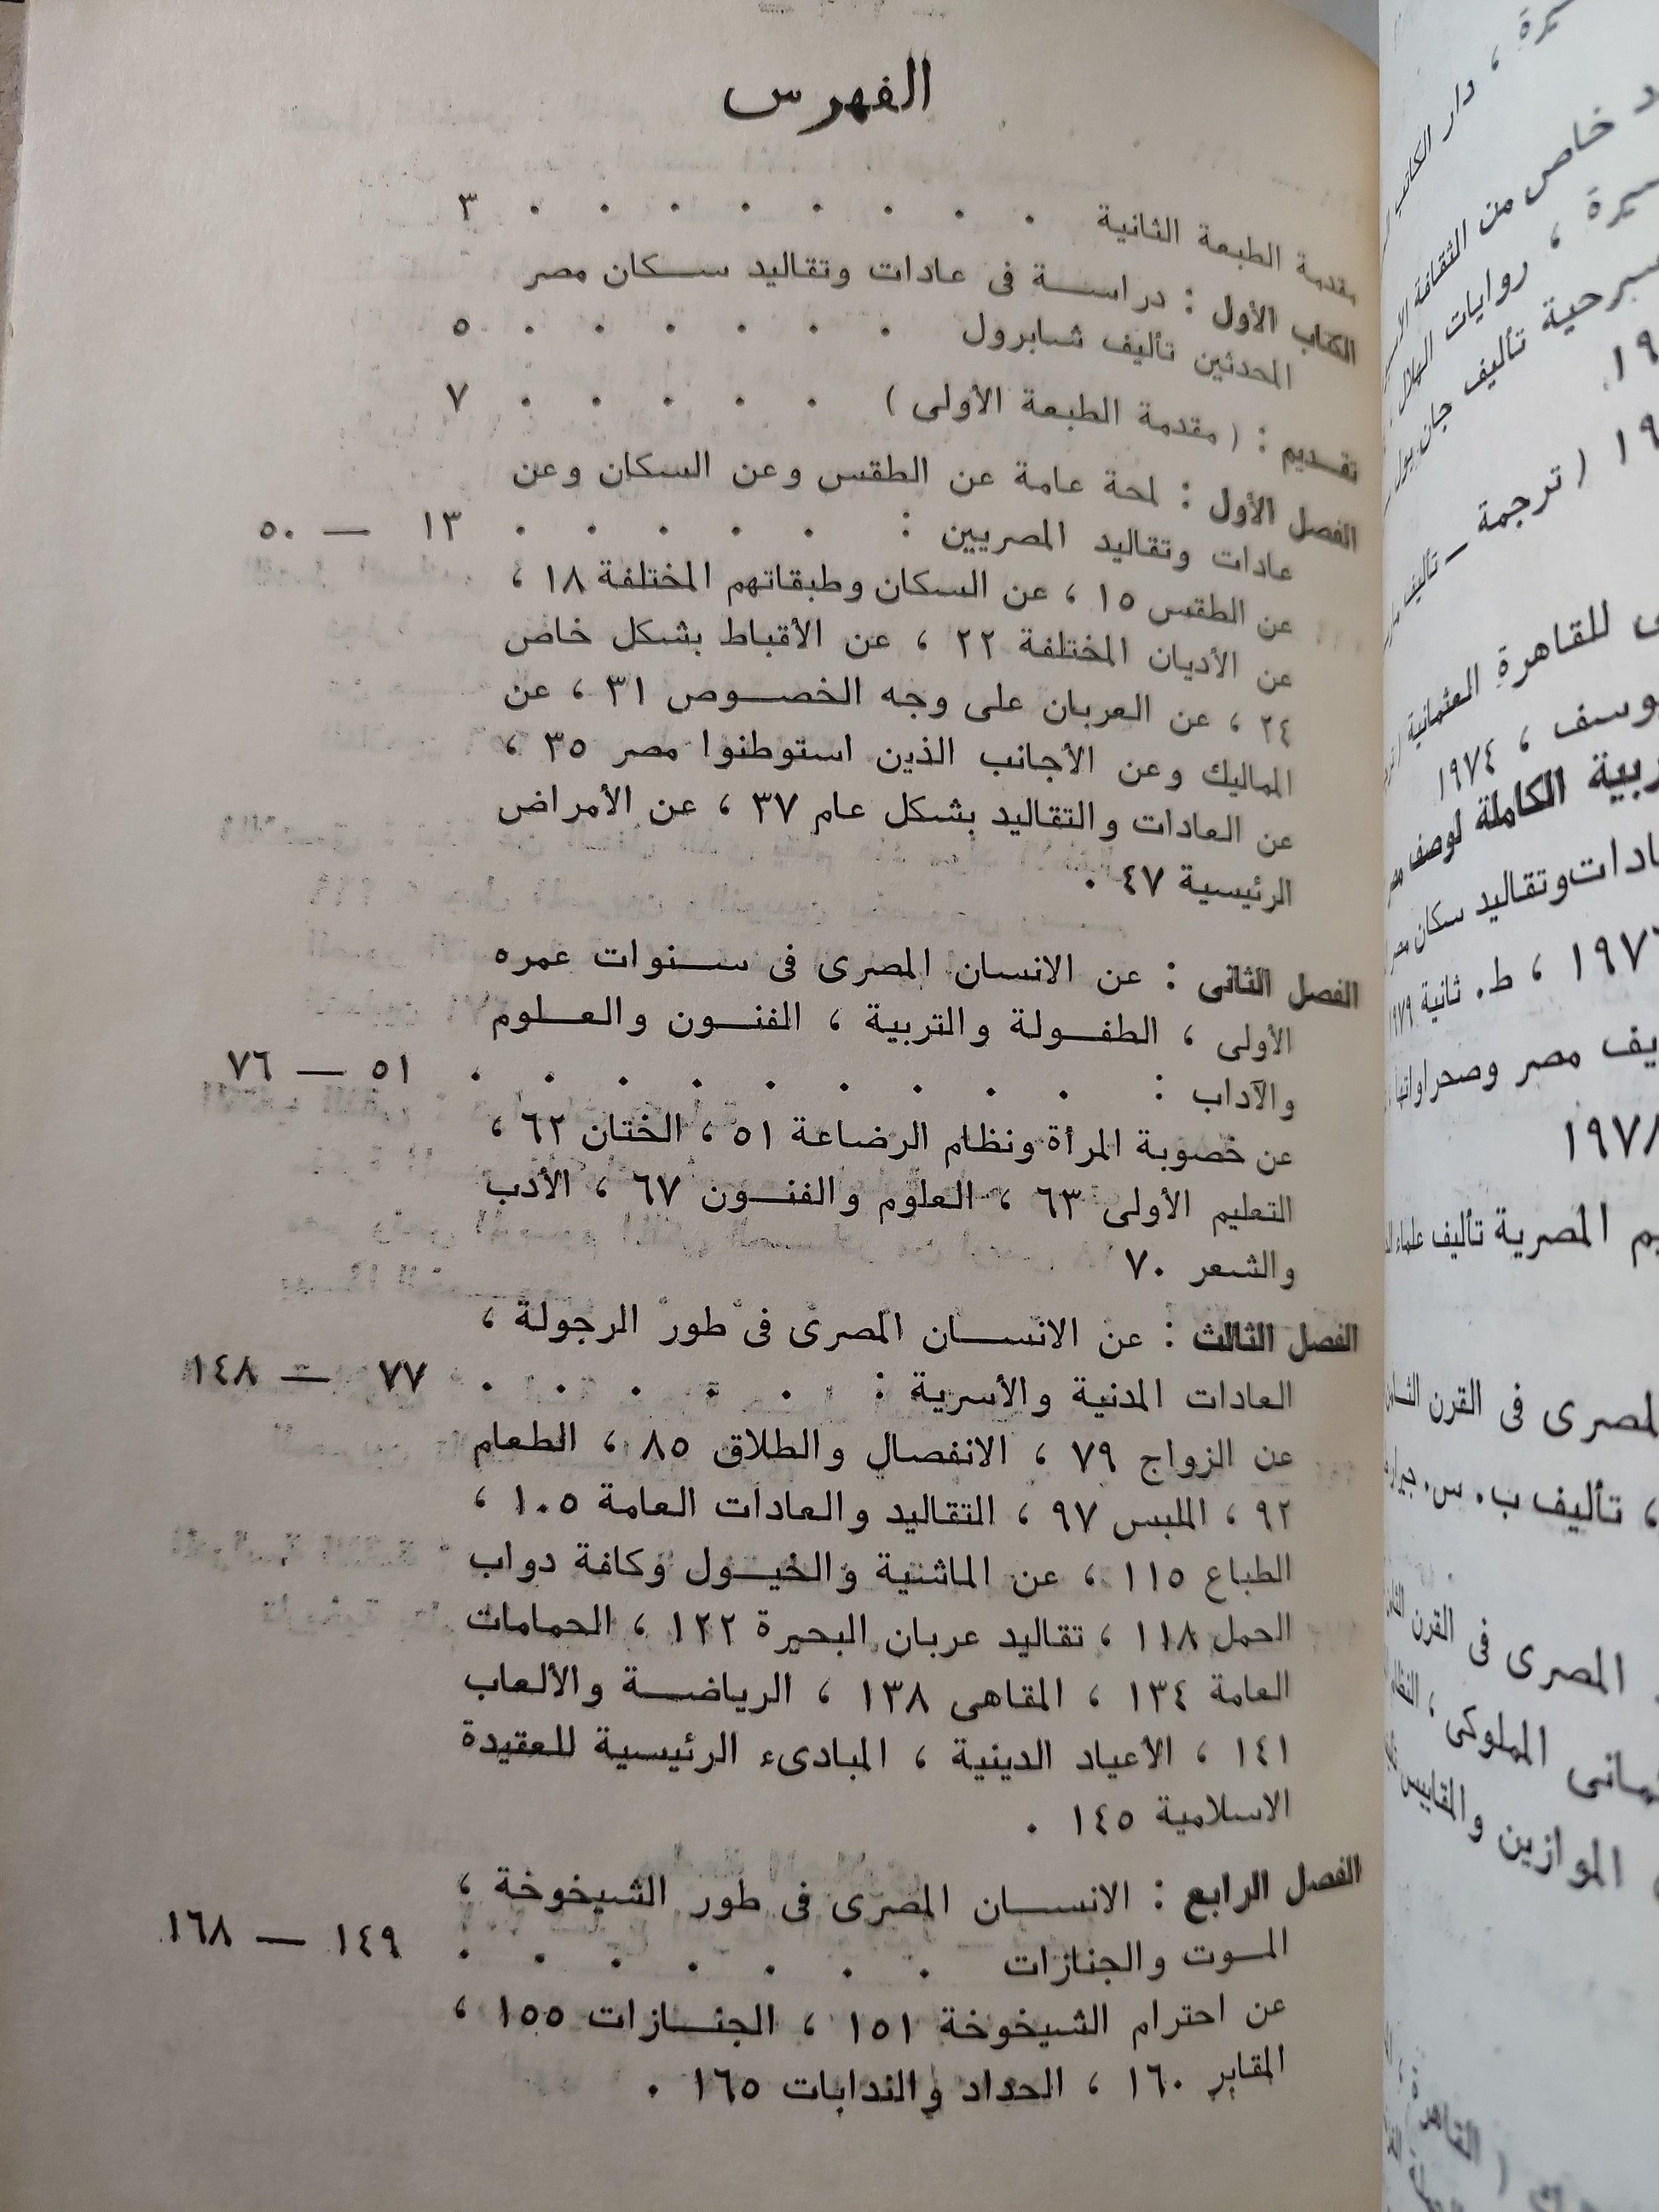 الفهرس
مقدمة الطبعة الثانية . . . . . . . . ٣
الكتاب الأول : دراسة فى عادات وتقاليد سكان مصر
المحدثين تأليف شابرول . . . . . . ٥
تقديم : ( مقدمة الطبعة الأولى ) . . . . . ٧
الفصل الأول : لمحة عامة عن الطقس وعن السكان وعن
عادات وتقاليد المصريين : . . . . . ١٣ — ٥٠
عن الطقس ١٥ ، عن السكان وطبقاتهم المختلفة ١٨ ،
عن الأديان المختلفة ٢٢ ، عن الأقباط بشكل خاص
٢٤ ، عن العربان على وجه الخصوص ٣١ ، عن
المماليك وعن الأجانب الذين استوطنوا مصر ٣٥ ،
عن العادات والتقاليد بشكل عام ٣٧ ، عن الأمراض
الرئيسية ٤٧ .
الفصل الثانى : عن الانسان المصرى فى سنوات عمره
الأولى ، الطفولة والتربية ، الفنون والعلوم
والآداب : . . . . . . . . . ٥١ — ٧٦
عن خصوبة المرأة ونظام الرضاعة ٥١ ، الختان ٦٢ ،
التعليم الأولى ٦٣ ، العلوم والفنون ٦٧ ، الأدب
والشعر ٧٠
الفصل الثالث : عن الانسان المصرى فى طور الرجولة ،
العادات المدنية والأسرية : . . . . . ٧٧ — ١٤٨
عن الزواج ٧٩ ، الانفصال والطلاق ٨٥ ، الطعام
٩٢ ، الملبس ٩٧ ، التقاليد والعادات العامة ١٠٥ ،
الطباع ١١٥ ، عن الماشية والخيول وكافة دواب
الحمل ١١٨ ، تقاليد عربان البحيرة ١٢٢ ، الحمامات
العامة ١٣٤ ، المقاهى ١٣٨ ، الرياضة والألعاب
١٤١ ، الأعياد الدينية ، المبادىء الرئيسية للعقيدة
الاسلامية ١٤٥ .
الفصل الرابع : الانسان المصرى فى طور الشيخوخة ،
الموت والجنازات . . . . . . . ١٤٩ — ١٦٨
عن احترام الشيخوخة ١٥١ ، الجنازات ١٥٥ ،
المقابر ١٦٠ ، الحداد والندابات ١٦٥ .
، دار الكاتب
خاص من الثقافة
، روايات الهلال
تأليف جان بول
( ترجمة — تأليف
للقاهرة العثمانية
، ١٩٧٤
الكاملة لوصف مصر
وتقاليد سكان مصر
، ط. ثانية ١٩٧٩
مصر وصحراواتها
المصرية تأليف علماء
فى القرن
، تأليف ب. س. جيرار
المصرى فى القرن
المملوكى ،
الموازين والمقاييس